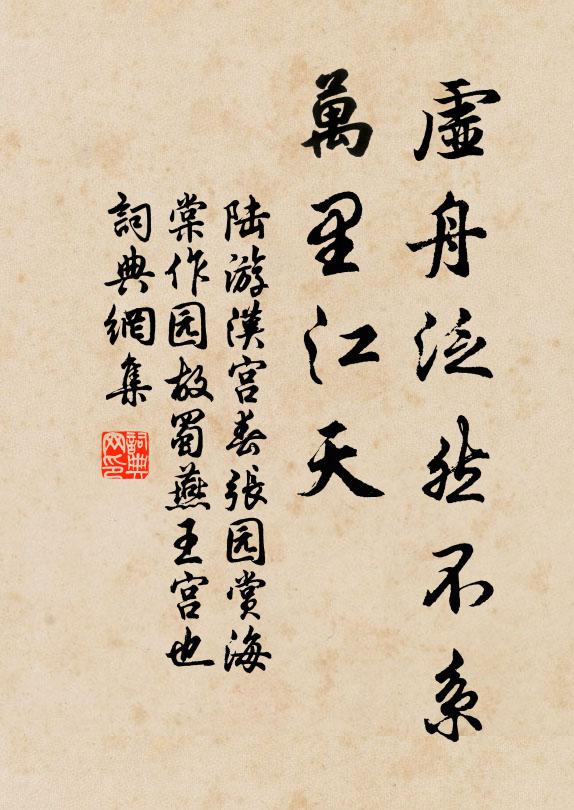 虛舟泛然不系
萬里江天
陆游漢宫春張园赏海
棠作园故蜀燕王宫也
詞典網集
詞典
网印